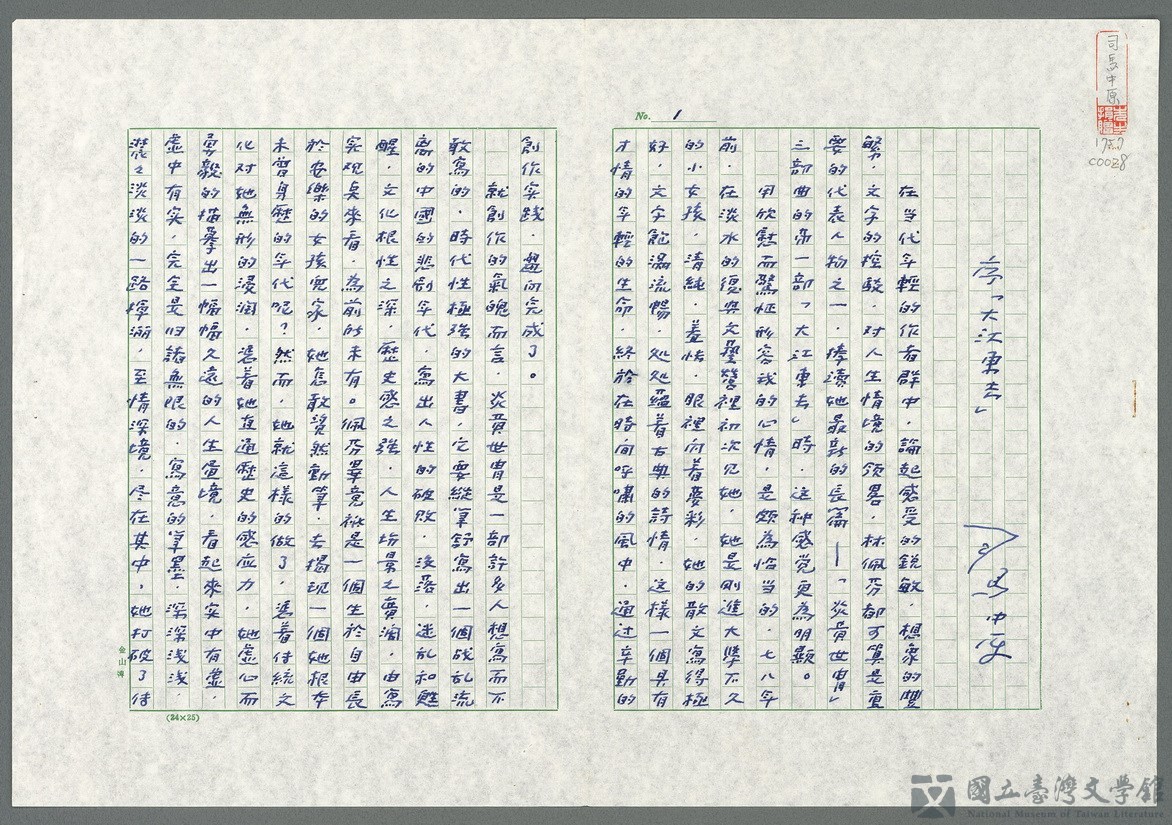 司馬中原
先生
捐贈
1757
C0028
No. 1
序「大江東去」
司馬中原
在当代年輕的作者群中.論起感受的銳敏.想象的豐
繁.文字的控驭.对人生情境的領畧.林佩芬都可算是重
要的代表人物之一.捧讀她最新的長篇——「炎黃世冑」
三部曲的第一部「大江東去」時.这种感觉更為明顯。
用欣慰而驚怔形容我的心情.是頗為恰当的.七八年
前.在淡水的復興文藝營裡初次见她.她是剛進大學不久
的小女孩.清純.羞怯.眼裡闪着夢彩.她的散文寫得極
好.文字飽滿流暢.处处蘊着古典的詩情.这樣一個具有
才情的年輕的生命.終於在時间呼嘯的風中.通过辛勤的
創作实践.邁向完成了。
就創作的氣魄而言.炎黃世冑是一部許多人想寫而不
敢寫的.時代性極強的大書.它要縱筆舒寫出一個战乱流
離的中國的悲劇年代.寫出人性的破败.沒落.迷乱和甦
醒.文化根性之深.歷史感之強.人生场景之廣濶.由寫
实观点來看.為前所未有。佩芬畢竟祗是一個生於自由長
於安樂的女孩兒家.她怎敢貿然動筆.去揭现一個她根本
未曾身歷的年代呢？然而.她就這樣的做了.憑着传統文
化对她無形的浸润.憑着她直通歷史的感应力.她虛心而
勇毅的描摹出一幅幅久遠的人生畫境.看起來实中有虛.
虛中有实.完全是归諸無限的.寫意的筆墨.深深浅浅.
濃濃淡淡的一路揮洒.至情深境.尽在其中.她打破了传
金山牌
(24×25)
國立臺灣文學館
National Museum of Taiwan Literature